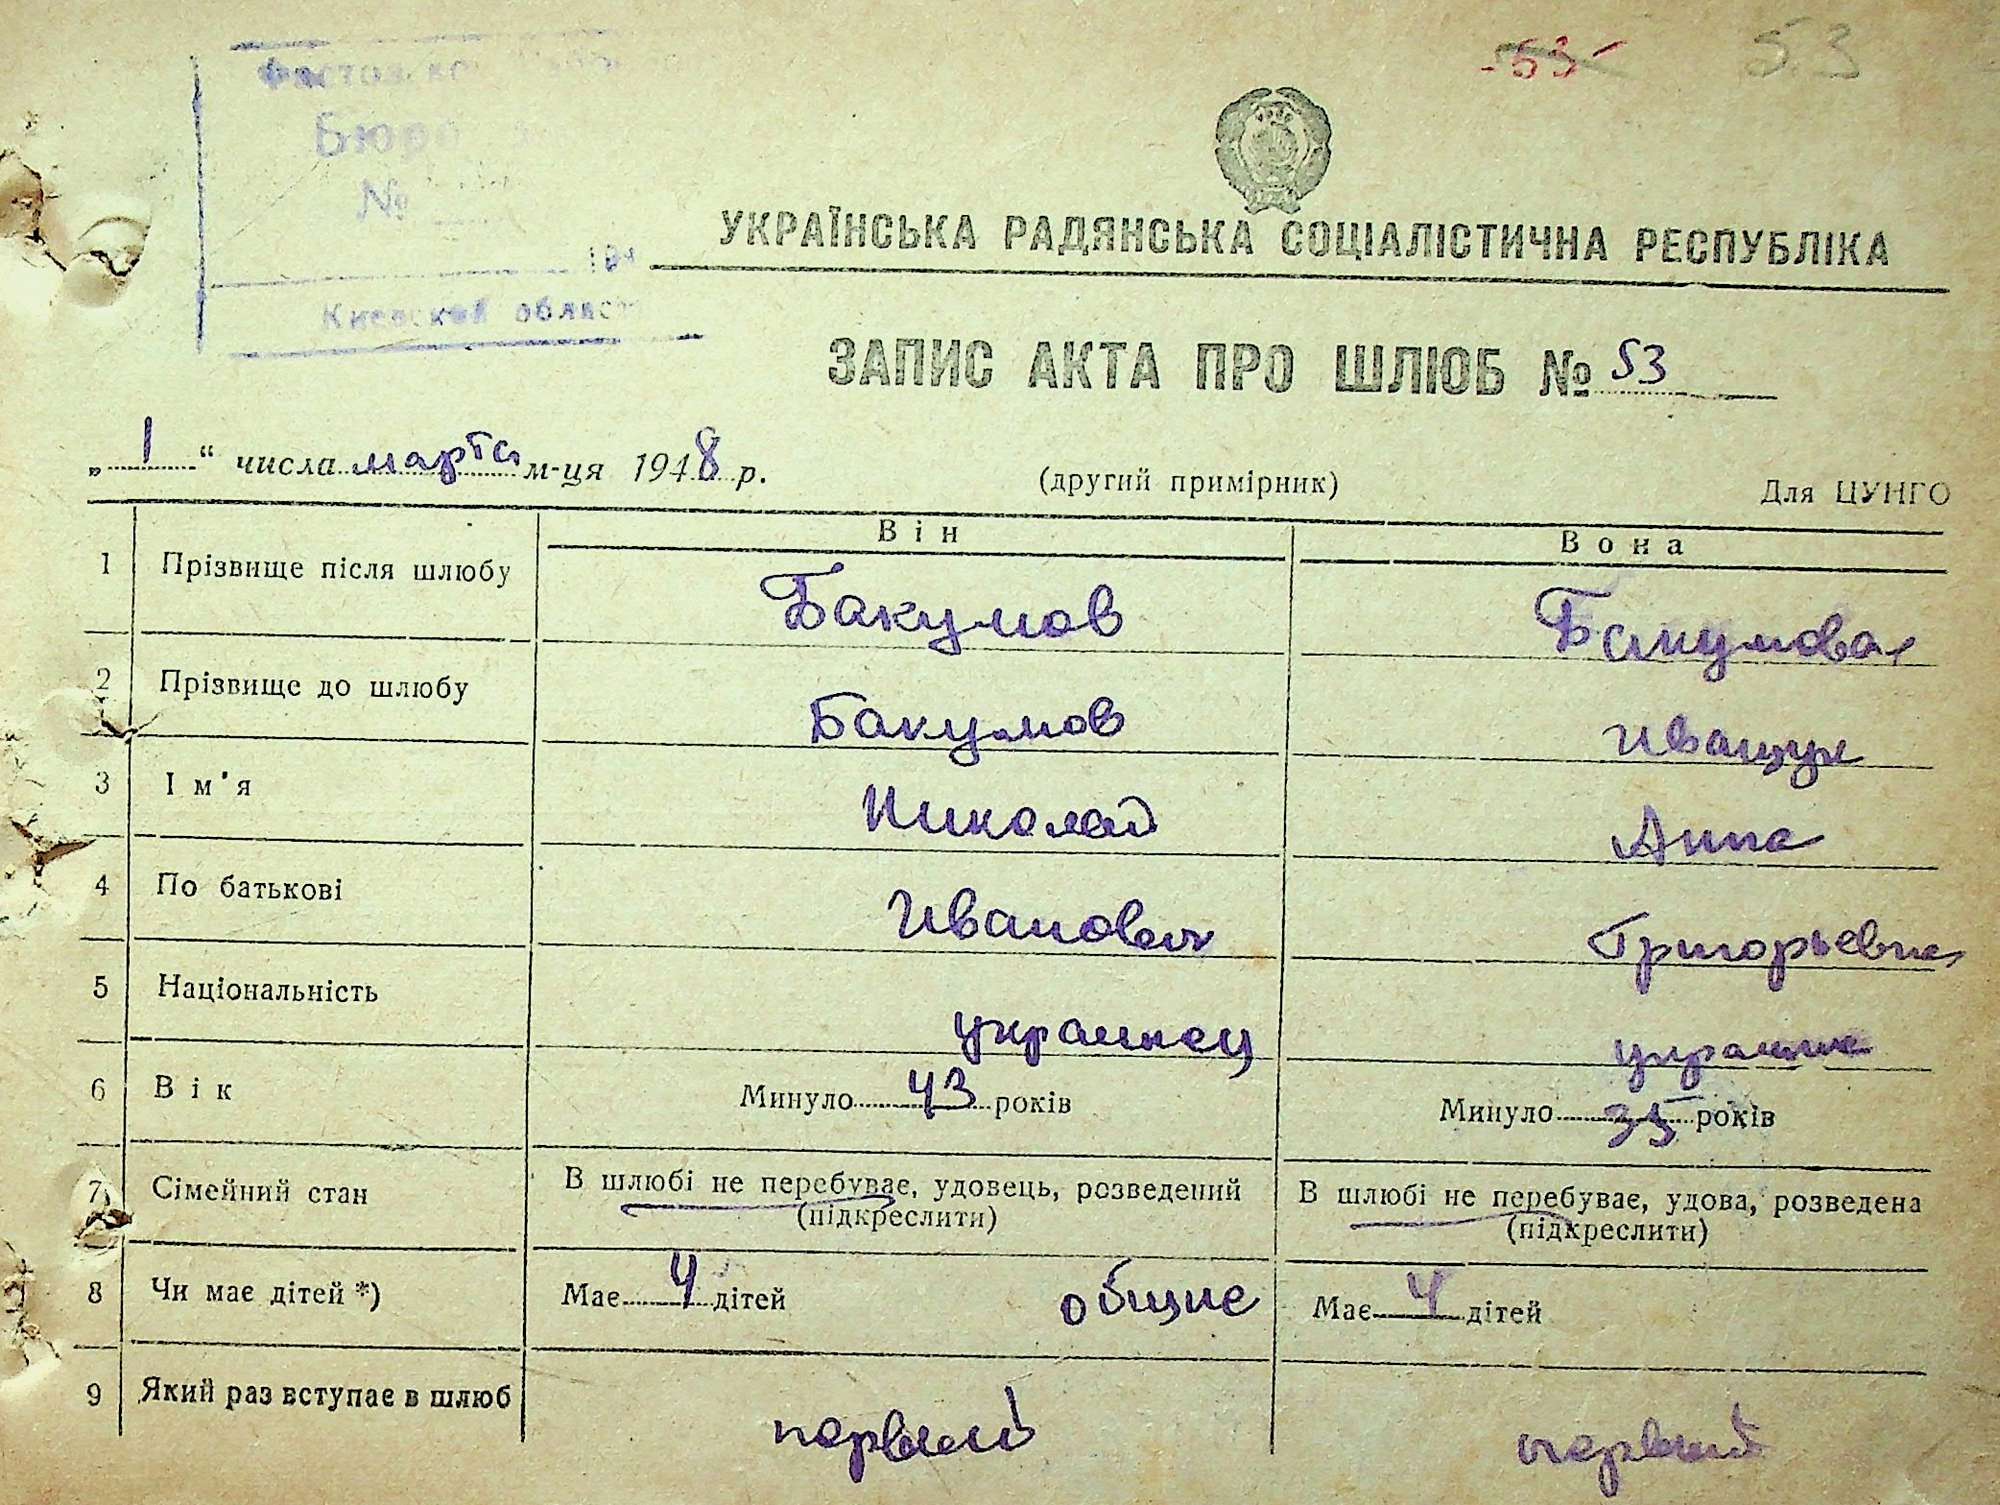 53 53
Бюро
№
194
Киевской област
УКРАЇНСЬКА РАДЯНСЬКА СОЦІАЛІСТИЧНА РЕСПУБЛІКА
ЗАПИС АКТА ПРО ШЛЮБ № 53
„ 1 “ числа марта м-ця 1948 р. (другий примірник) Для ЦУНГО
Він Вона
1 Прізвище після шлюбу Бакумов Бакумова
2 Прізвище до шлюбу Бакумов Иващук
3 Ім'я Николай Анна
4 По батькові Иванович Григорьевна
5 Національність украинец украинка
6 Вік Минуло 43 років Минуло 35 років
7 Сімейний стан В шлюбі не перебуває, удовець, розведений В шлюбі не перебуває, удова, розведена
(підкреслити) (підкреслити)
8 Чи має дітей *) Має 4 дітей общие Має 4 дітей
9 Який раз вступає в шлюб первый первый